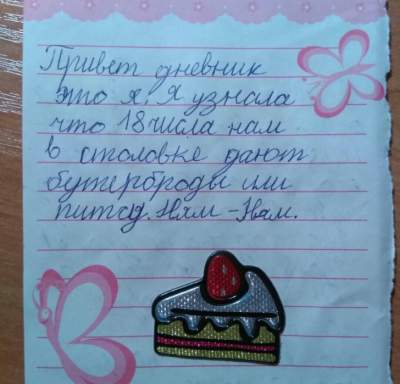 Привет дневник
это я. Я узнала
что 18 числа нам
в столовке дают
бутерброды или
питсд. Ням - Ням.